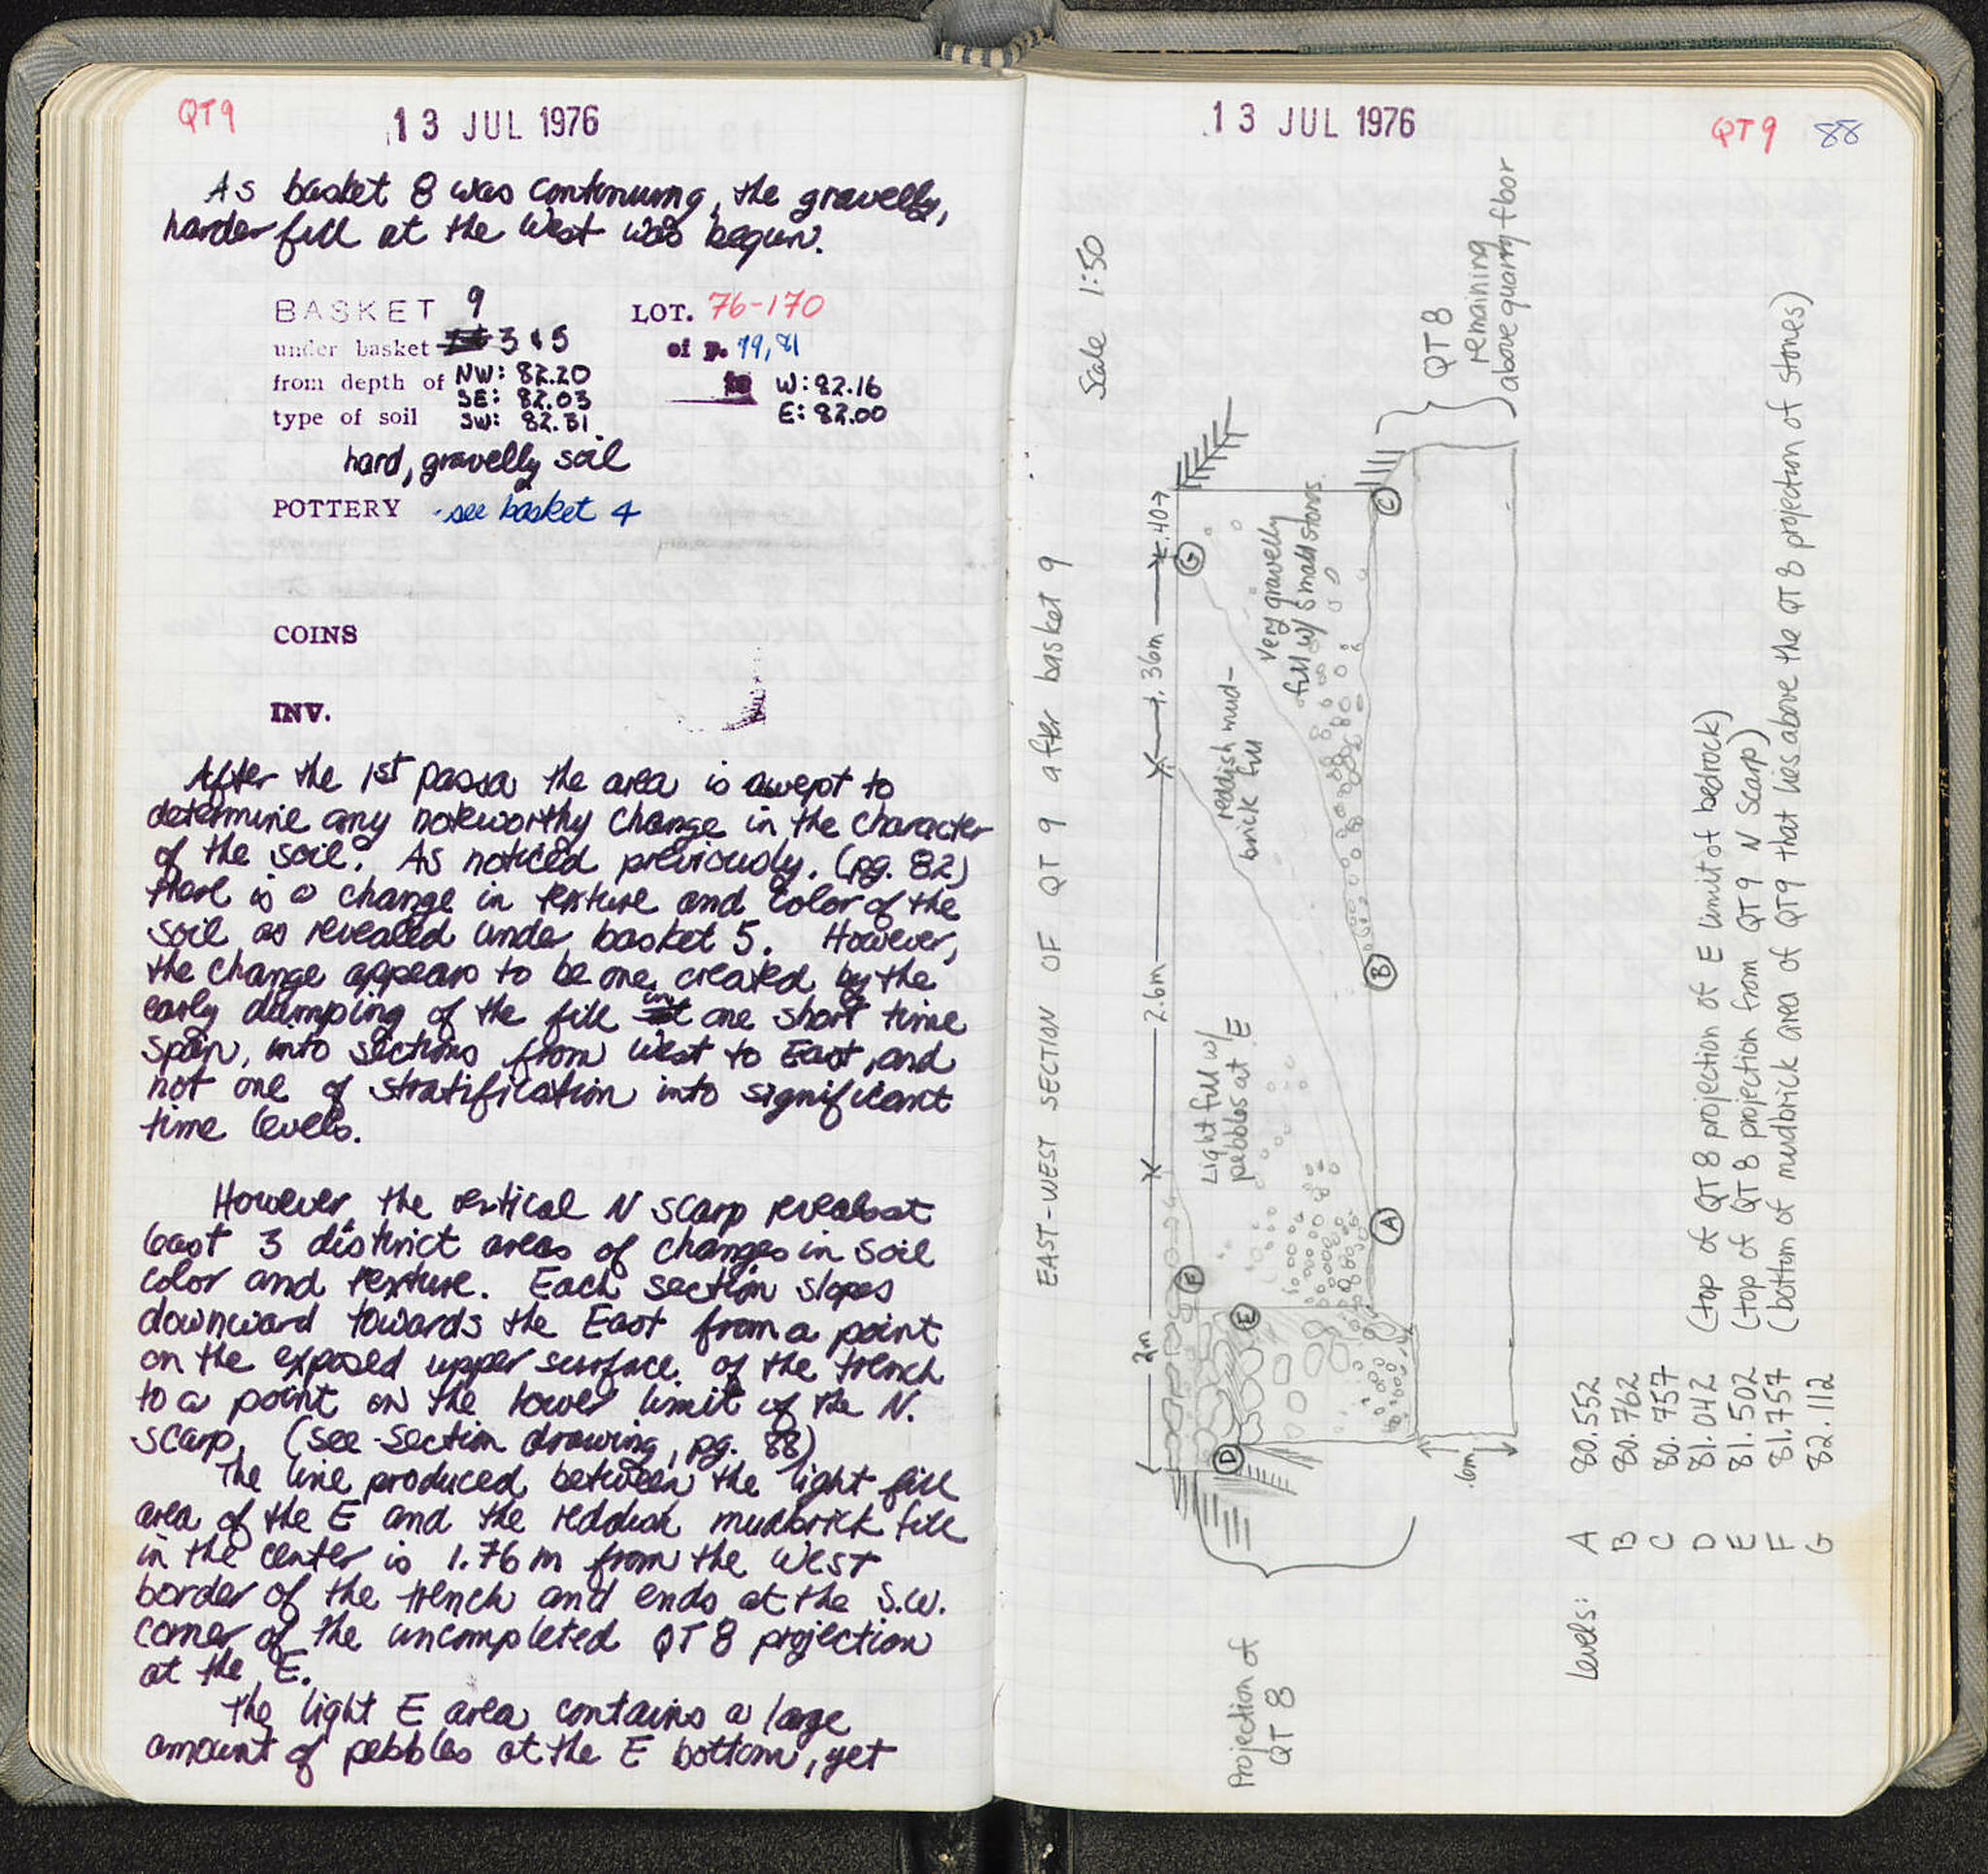 QT9
13 JUL 1976
As basket 8 was continuing, the gravelly,
harder fill at the West was begun.
BASKET 9 LOT. 76-170
under basket 3 & 5 of p. 79, 81
from depth of NW: 82.20 to W: 82.16
SE: 82.03 E: 82.00
type of soil SW: 82.31
hard, gravelly soil
POTTERY - see basket 4
COINS
INV.
After the 1st passa the area is swept to
determine any noteworthy change in the character
of the soil. As noticed previously, (pg. 82)
there is a change in texture and color of the
soil as revealed under basket 5. However,
the change appears to be one created by the
early dumping of the fill in one short time
span, into sections from West to East, and
not one of stratification into significant
time levels.
However, the vertical N scarp reveals at
least 3 distinct areas of changes in soil
color and texture. Each section slopes
downward towards the East from a point
on the exposed upper surface of the trench
to a point on the lower limit of the N.
scarp, (see section drawing, pg. 88)
The line produced between the light fill
area of the E and the reddish mudbrick fill
in the center is 1.76 m from the West
border of the trench and ends at the S.W.
corner of the uncompleted QT 8 projection
at the E.
The light E area contains a large
amount of pebbles at the E bottom, yet
13 JUL 1976
QT9 88
EAST-WEST SECTION OF QT 9 after basket 9
Scale 1:50
2m
2.6m
1.36m
.40
Light fill w/
pebbles at E
reddish mud-
brick fill
Very gravelly
fill w/ small stones.
QT 8
remaining
above quarry floor
F
E
D
A
B
G
C
.6m
Projection of
QT 8
levels: A 80.552
B 80.762
C 80.757
D 81.042 (top of QT 8 projection of E limit of bedrock)
E 81.502 (top of QT 8 projection from QT 9 N Scarp)
F 81.757 (bottom of mudbrick area of QT9 that lies above the QT 8 projection of stones)
G 82.112